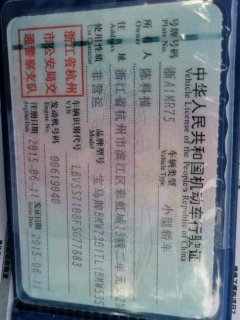 中华人民共和国机动车行驶证
Vehicle License of the People's Republic of China
号牌号码 浙A1KR75 车辆类型 小型轿车
Plate No. Vehicle Type
所有人 陈科植
Owner
住址 浙江省杭州市滨江区彩虹城13幢二单元
Address
使用性质 非营运 品牌型号 宝马牌BMW7301TL(BMW535
Use Character Model
浙江省杭州
市公安局交
通警察支队
车辆识别代号 LBV5S7108FSG77883
VIN
发动机号码 00619048
注册日期 2015-06-11 发证日期 2015-06-11
Register Date Issue Date